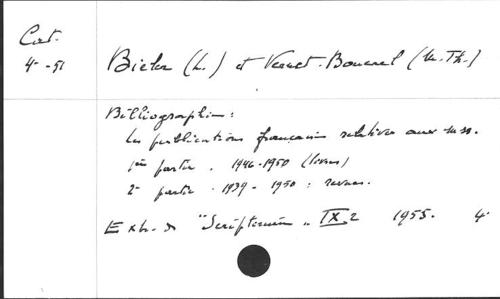 Cat.
4-51
Bieler (L.) et Vernet-Boucrel (M. Th.)
Bibliographie :
les publications françaises relatives aux mss.
1ère partie . 1946-1950 (livres)
2e partie . 1939-1950 : revues.
Extr. de "Scriptorium" IX, 2 1955. 4°